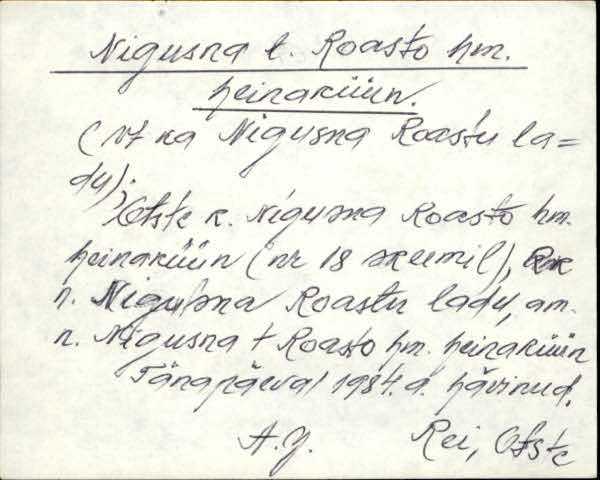 Nigusna t. Roasto hm.
heinaküün.
(vt ka Nigusna Roastu la=
dy);
k. Nigusna Roasto hm.
heinaküün (nr 18 skeemil),
n. Nigusna Roastu lady, am.
n. Nigusna t Roasto hm. heinaküün
Tänapäeval 1984. a. hävinud.
A.Y. Rei,